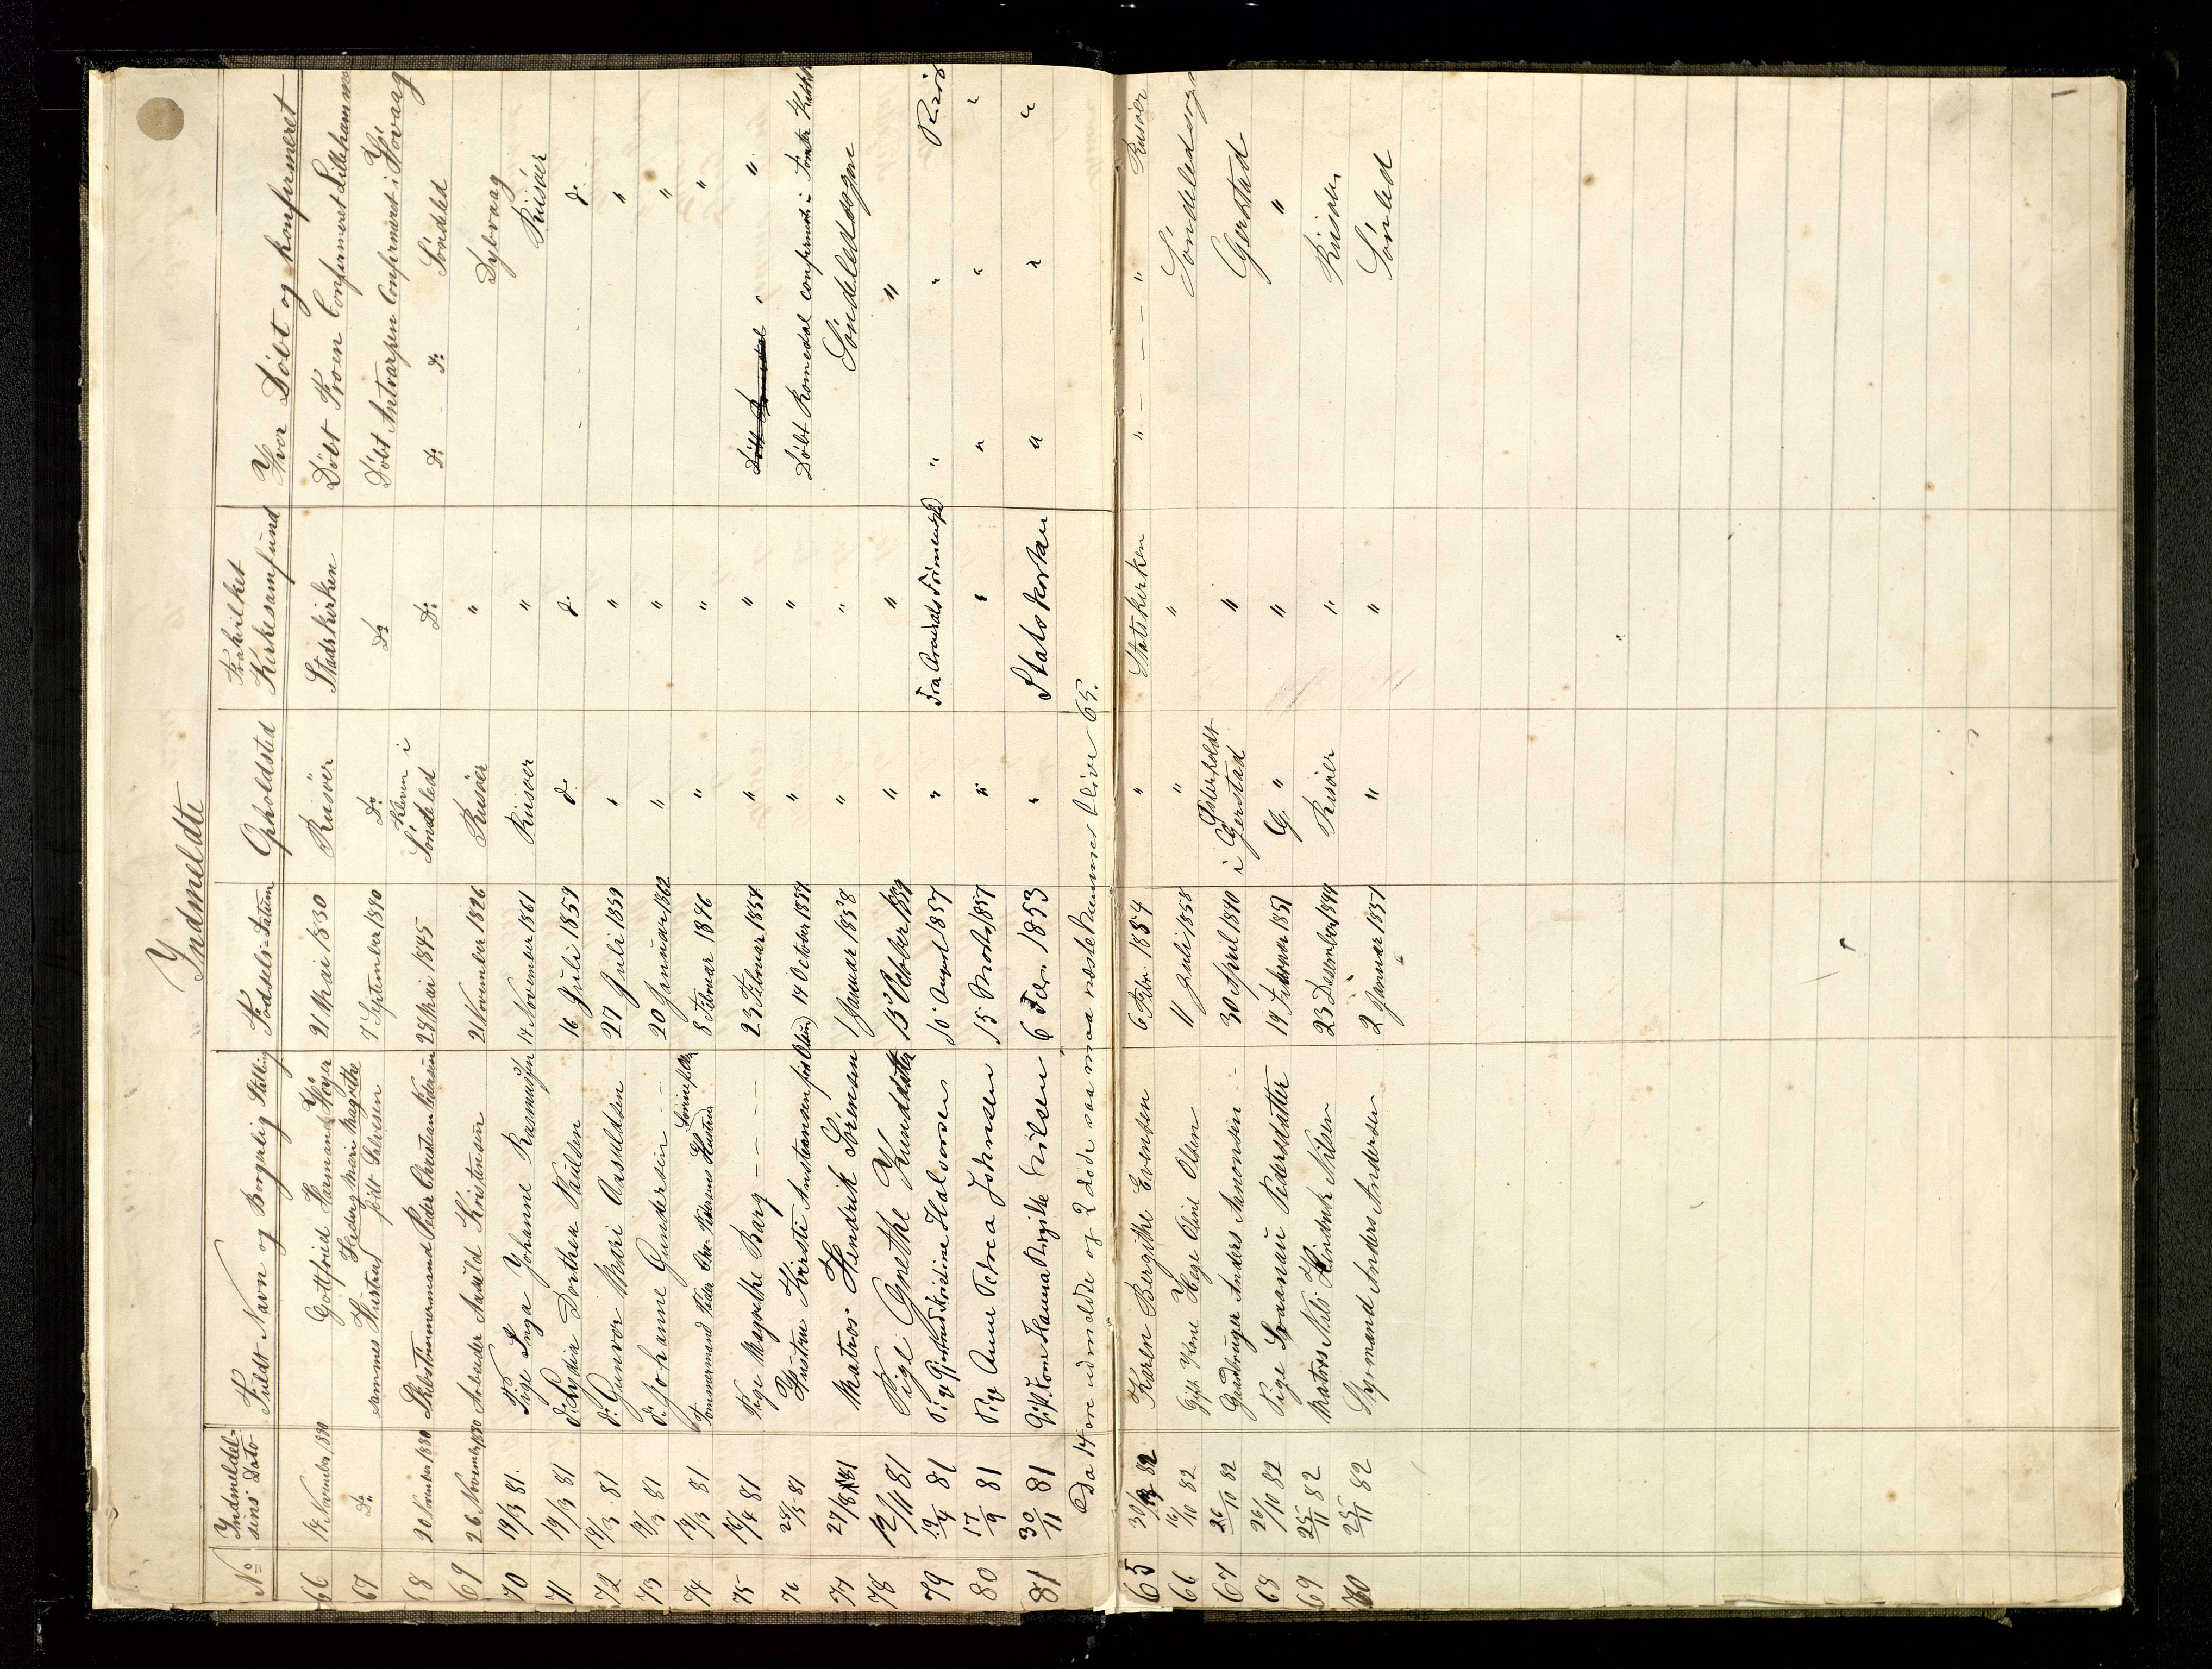 Indmeldte
No Indmeldelsens Dato Fuldt Navn og Borgerlig Stilling Fødsels-Datum Opholdsted Fra hvilket Kirkesamfund Hvor Döbt og konfirmeret
66 14 November 1880 Gottfried Harmand Høyer 21 Mai 1830 Riisöer Stadskirken Döbt Froen Confirmeret Lillehammer
67 Do Hedvig Mari Magrethe
sammes Hustru födt Salvesen 7 September 1840 Do Do Döbt Antvarpen Confirmeret i Høvaag
68 20 November 1880 Skibstömmermand Peder Christian Pedersen 28 Mai 1845 Kleven i
Söndeled Do Do Do Söndeled
69 26 November 1880 Arbeider Aasuld Kristensen 21 November 1826 Riisöer " Dybvaag
70 19/3 81. Pige Inga Johanne Rasmussen 14 November 1861 Riisöer " Riisöer
71 19/3 81 do Lydia Dorthea Paulsen 16 Juli 1859 do do do
72 19/3 81 do Gunvor Mari Aasuldsen 27 Juli 1859 " " "
73 19/3 81 do Johanne Gundersen 20 Januar 1862 " " "
74 19/3 81 Tömmermand Peder Chr. Pedersens Hustru 8 Februar 1846 " " "
75 19/4 81 Pige Magrethe Barg - - - 23 Februar 1858 " " "
76 28/5 81 Hustru Kirsti Anstensen 14 October 1854 " " Döbt Romedal confirmert i
77 27/8 81 Matros Hendrik Sörensen 1 Januar 1858 " " Söndeled sogn
78 12/11 81 Pige Grethe Knudsdatter 15 October 1859 " " "
79 12/4 81 Pige Gjertrud Kristine Halvorsen 10 August 1857 " Fra Arendals Frimenighed " "
80 17/9 81 Pige Anne Petrea Johnsen 15 Marts 1857 " " " " "
81 30/11 81 Gift Kone Hanna Birgitte Nilsen 6 Febr. 1853 " Statskerken " " "
Da 14 ere udmeldte og 2 döde saa maa næste nummer blive 65.
65 82 Karen Bergithe Evensen 6 Febr. 1854 " Statskerken " - - - " Riisöer
66 16/10 82 Gift Kone Hege Oline Olsen 11 Juli 1858 " " Söndeled sogn
67 26/10 82 Gaardbruger Anders Aanonsen 30 April 1840 Østerholdt
i Gerestad " Gerestad
68 26/10 82 Pige Svanau Pedersdatter 14 Februar 1851 G. " " "
69 25/11 82 Matros Nils Hendrik Nilsen 23 Desember 1844 Risöer " Riisöer
70 25/11 82 Styrmand Anders Andersen 2 Januar 1851 " " Sönled